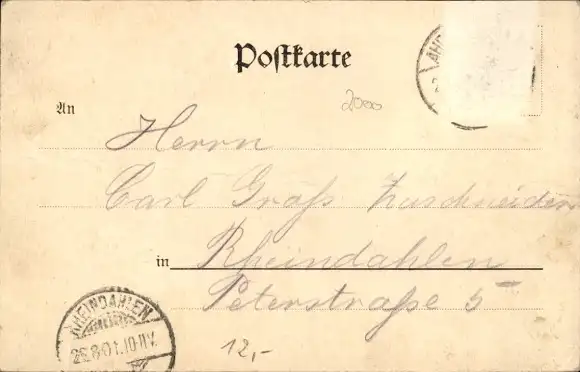 Postkarte
2000
An
Herrn
Carl Gräfs Zuschneider
in Rheindahlen
Peterstraße 5
12,-
RHEINDAHLEN
26.8.01.10-11V.